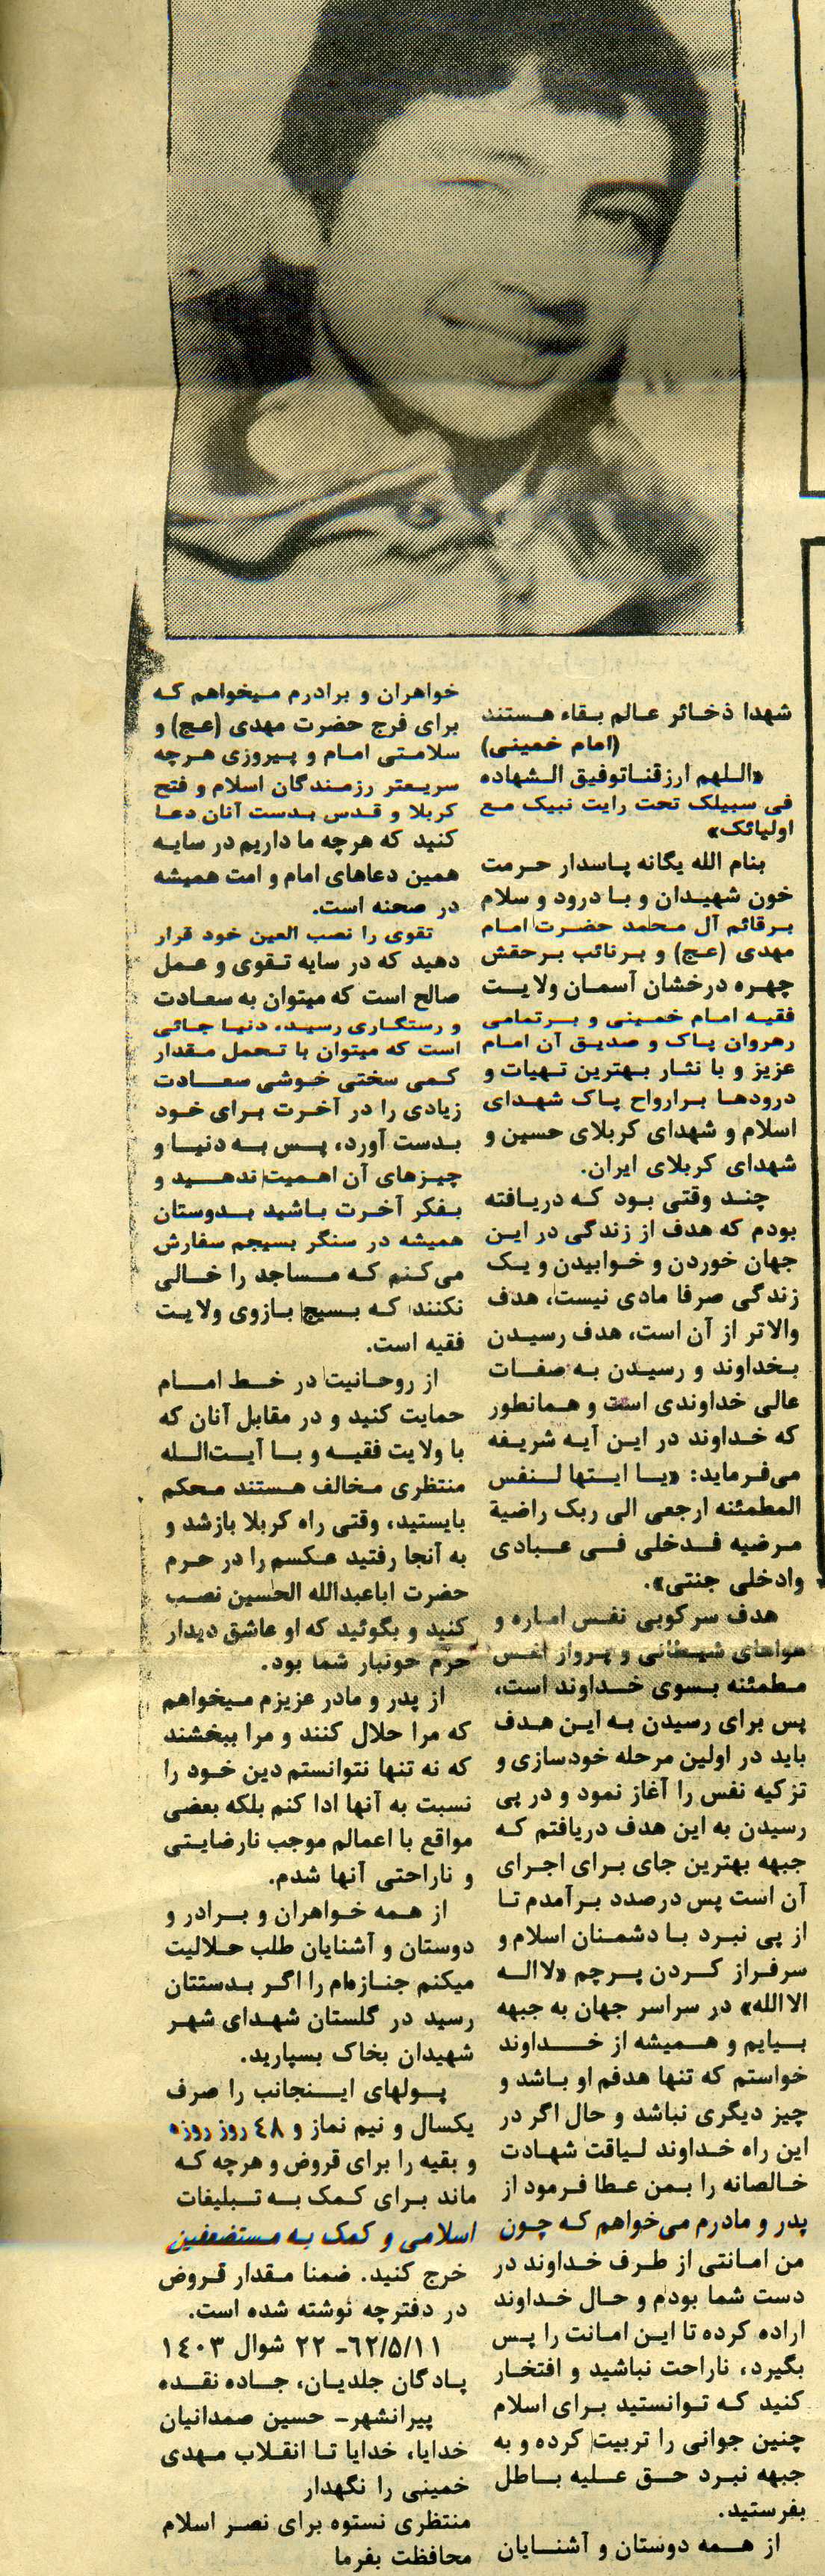 شهدا ذخائر عالم بقاء هستند
(امام خمینی)
«اللهم ارزقنا توفیق الشهاده
فی سبیلک تحت رایت نبیک مع
اولیائک»
بنام الله یگانه پاسدار حرمت
خون شهیدان و با درود و سلام
برقائم آل محمد حضرت امام
مهدی (عج) و برنائب برحقش
چهره درخشان آسمان ولایت
فقیه امام خمینی و برتمامی
رهروان پاک و صدیق آن امام
عزیز و با نثار بهترین تهیات و
درودها برارواح پاک شهدای
اسلام و شهدای کربلای حسین و
شهدای کربلای ایران.
چند وقتی بود که دریافته
بودم که هدف از زندگی در این
جهان خوردن و خوابیدن و یک
زندگی صرفا مادی نیست، هدف
والاتر از آن است، هدف رسیدن
بخداوند و رسیدن به صفات
عالی خداوندی است و همانطور
که خداوند در این آیه شریفه
می‌فرماید: «یا ایتها لنفس
المطمئنه ارجعی الی ربک راضیة
مرضیه فدخلی فی عبادی
وادخلی جنتی».
هدف سرکوبی نفس اماره و
هواهای شیطانی و پرواز نفس
مطمئنه بسوی خداوند است،
پس برای رسیدن به این هدف
باید در اولین مرحله خودسازی و
تزکیه نفس را آغاز نمود و در پی
رسیدن به این هدف دریافتم که
جبهه بهترین جای برای اجرای
آن است پس درصدد برآمدم تا
از پی نبرد با دشمنان اسلام و
سرفراز کردن پرچم «لااله
الاالله» در سراسر جهان به جبهه
بیایم و همیشه از خداوند
خواستم که تنها هدفم او باشد و
چیز دیگری نباشد و حال اگر در
این راه خداوند لیاقت شهادت
خالصانه را بمن عطا فرمود از
پدر و مادرم می‌خواهم که چون
من امانتی از طرف خداوند در
دست شما بودم و حال خداوند
اراده کرده تا این امانت را پس
بگیرد، ناراحت نباشید و افتخار
کنید که توانستید برای اسلام
چنین جوانی را تربیت کرده و به
جبهه نبرد حق علیه باطل
بفرستید.
از همه دوستان و آشنایان
خواهران و برادرم میخواهم که
برای فرج حضرت مهدی (عج) و
سلامتی امام و پیروزی هرچه
سریعتر رزمندگان اسلام و فتح
کربلا و قدس بدست آنان دعا
کنید که هرچه ما داریم در سایه
همین دعاهای امام و امت همیشه
در صحنه است.
تقوی را نصب العین خود قرار
دهید که در سایه تقوی و عمل
صالح است که میتوان به سعادت
و رستگاری رسید، دنیا جائی
است که میتوان با تحمل مقدار
کمی سختی خوشی سعادت
زیادی را در آخرت برای خود
بدست آورد، پس به دنیا و
چیزهای آن اهمیت ندهید و
بفکر آخرت باشید بدوستان
همیشه در سنگر بسیجم سفارش
می‌کنم که مساجد را خالی
نکنند که بسیج بازوی ولایت
فقیه است.
از روحانیت در خط امام
حمایت کنید و در مقابل آنان که
با ولایت فقیه و با آیت‌الله
منتظری مخالف هستند محکم
بایستید، وقتی راه کربلا بازشد و
به آنجا رفتید عکسم را در حرم
حضرت اباعبدالله الحسین نصب
کنید و بگوئید که او عاشق دیدار
حرم خونبار شما بود.
از پدر و مادر عزیزم میخواهم
که مرا حلال کنند و مرا ببخشند
که نه تنها نتوانستم دین خود را
نسبت به آنها ادا کنم بلکه بعضی
مواقع با اعمالم موجب نارضایتی
و ناراحتی آنها شدم.
از همه خواهران و برادر و
دوستان و آشنایان طلب حلالیت
میکنم جنازه‌ام را اگر بدستتان
رسید در گلستان شهدای شهر
شهیدان بخاک بسپارید.
پولهای اینجانب را صرف
یکسال و نیم نماز و ٤٨ روز روزه
و بقیه را برای قروض و هرچه که
ماند برای کمک به تبلیفات
اسلامی و کمک به مستضعفین
خرج کنید. ضمنا مقدار قروض
در دفترچه نوشته شده است.
٦٢/٥/١١- ٢٢ شوال ١٤٠٣
پادگان جلدیان، جاده نقده
پیرانشهر- حسین صمدانیان
خدایا، خدایا تا انقلاب مهدی
خمینی را نگهدار
منتظری نستوه برای نصر اسلام
محافظت بفرما